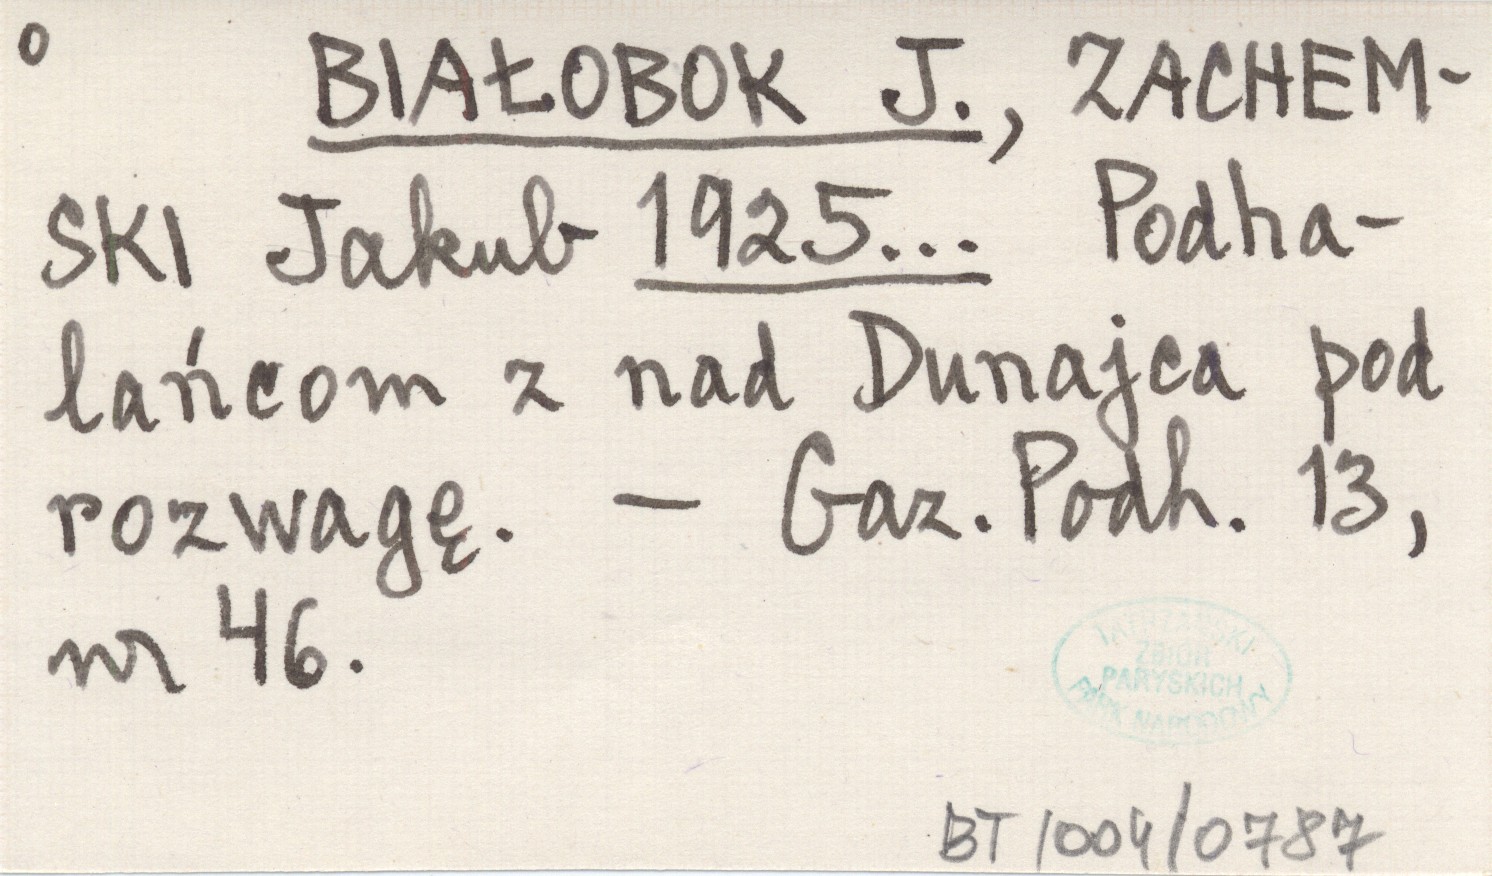 o BIAŁOBOK J., ZACHEM-
SKI Jakub 1925... Podha-
lańcom z nad Dunajca pod
rozwagę. — Gaz. Podh. 13,
nr 46.
TATRZAŃSKI
ZBIÓR
PARYSKICH
PARK NARODOWY
BT 1004/0787